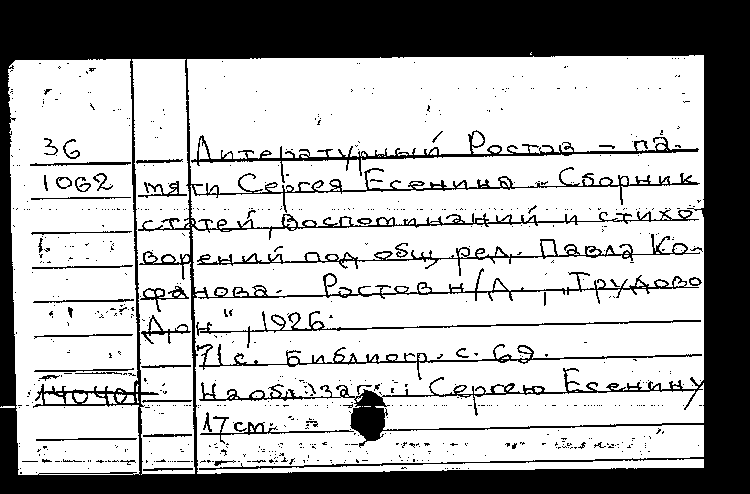 36 Литературный Ростов – па-
1062 мяти Сергея Есенина. Сборник
статей, воспоминаний и стихо
ворений под общ. ред. Павла Ко-
фанова. Ростов н/Д., „Трудово
Дон", 1926.
71 с. Библиогр. с. 69.
140401 На обл. загл.: Сергею Есенину
17 см.